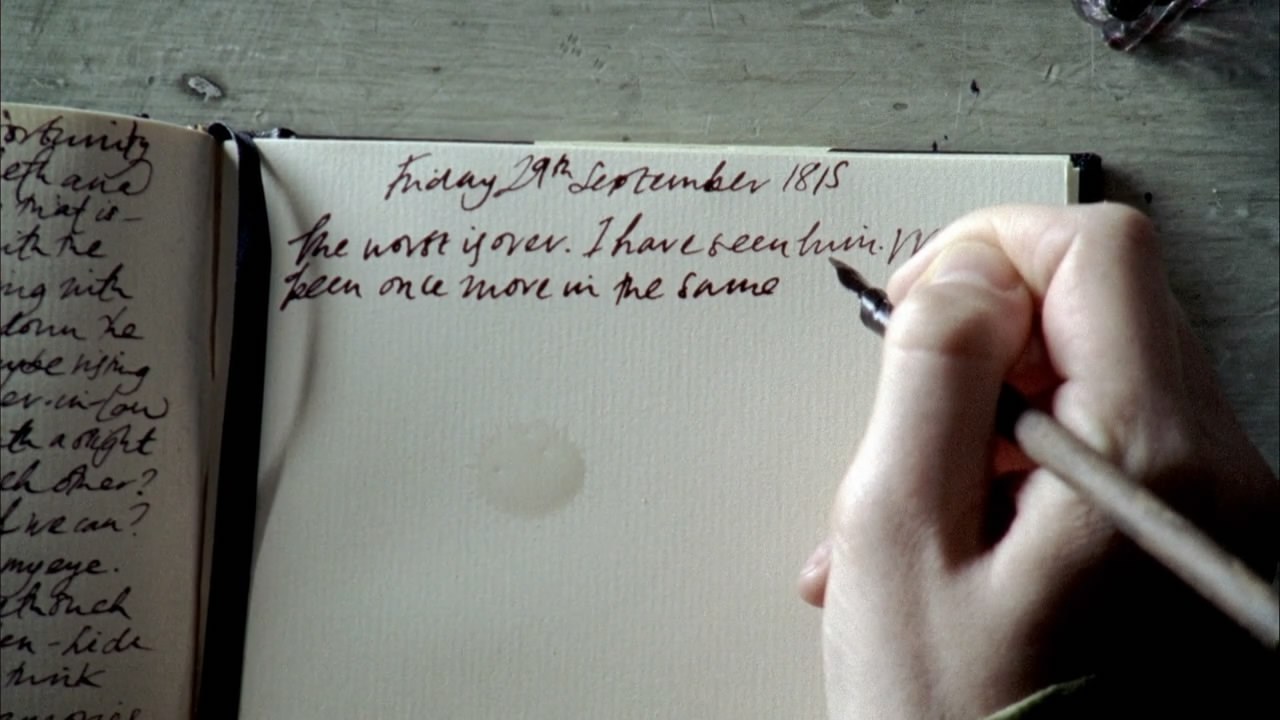 ortunity
that is -
ith the
ng with
down the
rising
er-in-law
ght
ch other?
f we can?
my eye.
en - hide
think
Friday 29th September 1815
The worst is over. I have seen him. W
been once more in the same